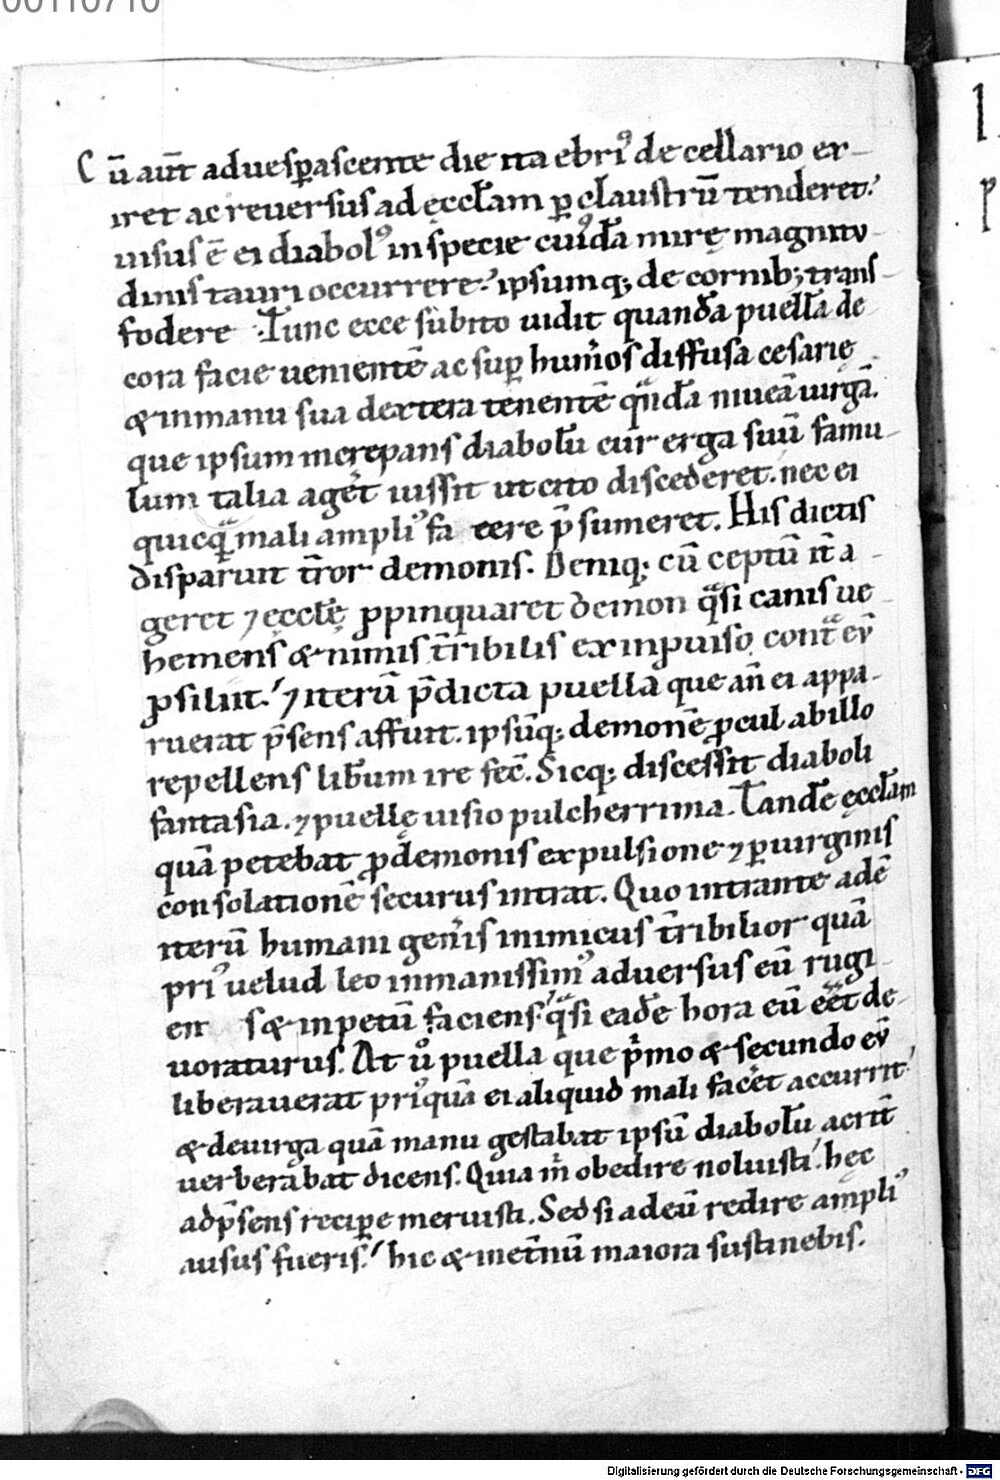 00110710
Cū aut̄ aduesꝑascente die ita ebriꝰ de cellario ex-
iret ac reuersus ad ęccl̄am ꝑ claustrū tenderet.
uisus ē ei diabolꝰ in specie cuiꝰdā mirę magnitu-
dinis tauri occurrere. ipsumq; de cornib; trans-
fodere. Tunc ecce subito uidit quandā puellā de
cora facie uenientē ac suꝑ humͦos diffusa cesarię
& in manu sua dextera tenentē qͣndā niueā uirgā.
que ipsum increpans diabolū cur erga suū famu-
lum talia ageͤt iussit ut cito discederet. nec ei
quicqͣ mali ampliꝰ facere p̄sumeret. His dictis
disparuit t̄ror demonis. Deniq; cū ceptū it̄ a-
geret ⁊ ęccl̄ę ꝓpinquaret demon qͣsi canis ue-
hemens & nimis t̄ribilis ex inprouiso contͣ eū
ꝓsiliit. ⁊ iterū p̄dicta puella que an̄ ei appa-
ruerat p̄sens affuit. ipsūq; demonē ꝓcul ab illo
repellens lib̄um ire fec̄. Sicq; discessit diaboli
fantasia. ⁊ puellę uisio pulcherrima. Tandē ęccl̄am
quā petebat ꝓ demonis expulsione ⁊ ꝑ uirginis
consolationē securus intrat. Quo intrante adē
iterū humani genͥis inimicus t̄ribilior quā
priꝰ uelud leo inmanissimꝰ aduersus eū rugi-
en s & inpetū faciens qͣsi eadē hora eū eēt de-
uoraturus. At uͦ puella que pͥmo & secundo eū
liberauerat priꝰquā ei aliquid mali faceͤt accurrit
& de uirga quā manu gestabat ipsū diabolū acrit̄
uerberabat dicens. Quia m̄ obedire noluisti. hęc
ad p̄sens recipe meruisti. Sed si ad eū redire ampliꝰ
ausus fueris. hic & inet̄nū maiora sustinebis.
Digitalisierung gefördert durch die Deutsche Forschungsgemeinschaft - DFG